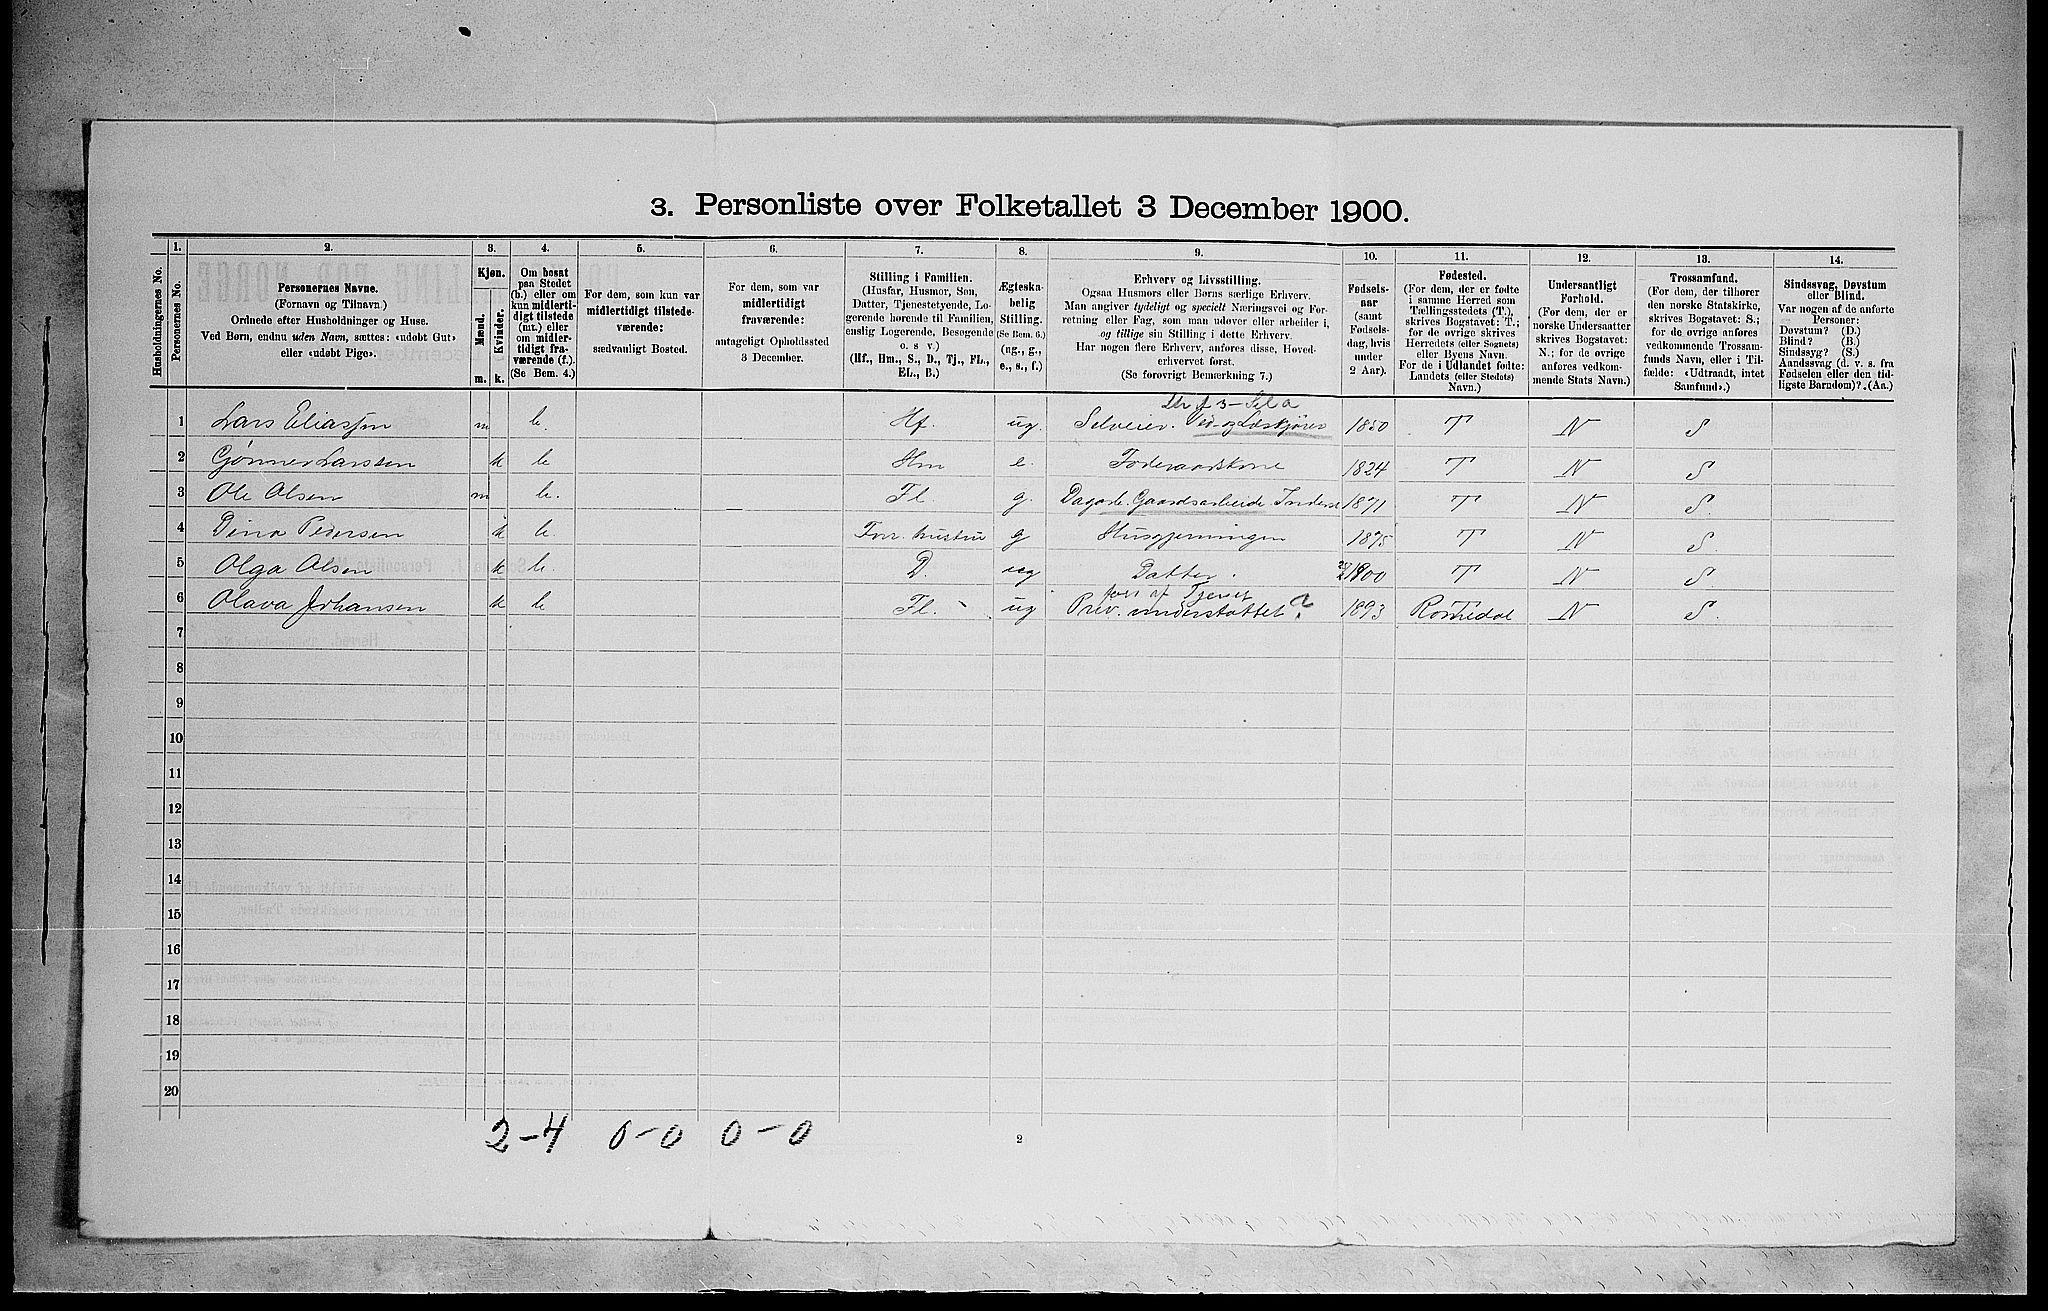 3. Personliste over Folketallet 3 December 1900.
Husholdningernes No.
1.
Personernes No.
2.
Personernes Navne.
(Fornavn og Tilnavn.)
Ordnede efter Husholdninger og Huse.
Ved Børn, endnu uden Navn, sættes: «udøbt Gut»
eller «udøbt Pige».
3.
Kjøn.
Mænd.
Kvinder.
m. k.
4.
Om bosat
paa Stedet
(b.) eller om
kun midlerti-
digt tilstede
(mt.) eller
om midler-
tidigt fra-
værende (f.).
(Se Bem. 4.)
5.
For dem, som kun var
midlertidigt tilstede-
værende:
sædvanligt Bosted.
6.
For dem, som var
midlertidigt
fraværende:
antageligt Opholdssted
3 December.
7.
Stilling i Familien.
(Husfar, Husmor, Søn,
Datter, Tjenestetyende, Lo-
gerende hørende til Familien,
enslig Logerende, Besøgende
o. s. v.)
(Hf., Hm., S., D., Tj., FL.,
EL., B.)
8.
Ægteska-
belig
Stilling.
(Se Bem. 6.)
(ug., g.,
e., s., f.)
9.
Erhverv og Livsstilling.
Ogsaa Husmors eller Børns særlige Erhverv.
Man angiver tydeligt og specielt Næringsvei og For-
retning eller Fag, som man udøver eller arbeider i,
og tillige sin Stilling i dette Erhverv.
Har nogen flere Erhverv, anføres disse, Hoved-
erhvervet først.
(Se forøvrigt Bemærkning 7.)
10.
Fødsels-
aar
(samt
Fødsels-
dag, hvis
under
2 Aar).
11.
Fødested.
(For dem, der er fødte
i samme Herred som
Tællingsstedets (T.),
skrives Bogstavet: T.;
for de øvrige skrives
Herredets (eller Sognets)
eller Byens Navn.
For de i Udlandet fødte:
Landets (eller Stedets)
Navn.)
12.
Undersaatligt
Forhold.
(For dem, der er
norske Undersaatter
skrives Bogstavet:
N.; for de øvrige
anføres vedkom-
mende Stats Navn.)
13.
Trossamfund.
(For dem, der tilhører
den norske Statskirke,
skrives Bogstavet: S.;
for de øvrige anføres
vedkommende Trossam-
funds Navn, eller i Til-
fælde: «Udtraadt, intet
Samfund».)
14.
Sindssvag, Døvstum
eller Blind.
Var nogen af de anførte
Personer:
Døvstum? (D.)
Blind? (B.)
Sindssyg? (S.)
Aandssvag (d. v. s. fra
Fødselen eller den tid-
ligste Barndom)? (Aa.)
1 Lars Eliassen m b. Hf. ug. Selveier. Ved- og 1850 T N S
2 Gønner Larssen k b Hm e. Føderaadskone 1824 T N S
3 Ole Olsen m b. Fl. g. Dagarb. Gaardsarbeide Inderst 1871 T N S
4 Dina Pedersen k b. Forr. hustru g Husgjerningen 1875 T N S.
5 Olga Olsen k b. D. ug Datter. 1900 T N S
6 Olava Johansen k b Fl. ug Priv. understøttet ? 1893 Romedal N S.
7
8
9
10
11
12
13
14
15
16
17
18
19
20
2-4 0-0 0-0
2